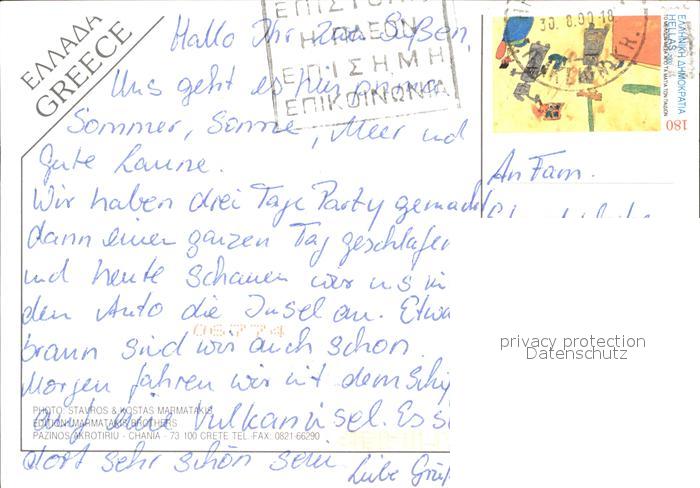 ΕΛΛΑΔΑ
GREECE
ΗΠΛΕΟΝ
ΕΠΙΣΗΜΗ
ΕΠΙΚΟΙΝΩΝΙΑ
30.8.00-18
ΕΛΛΗΝΙΚΗ ΔΗΜΟΚΡΑΤΙΑ
HELLAS
180
Hallo Ihr zwei Süßen,
Uns geht es hier prima
Sommer, Sonne, Meer und
Gute Laune.
Wir haben drei Tage Party gemacht
dann einen ganzen Tag geschlafen
und heute schauen wir uns
den Auto die Insel an. Etwa
braun sind wir auch schon.
Morgen fahren wir mit dem Schi
auf eine Vulkaninsel. Es s
dort sehr schön sein.
Liebe Grüß
An Fam.
06774
PHOTO: STAVROS & KOSTAS MARMATAKIS
EDITION: MARMATAKIS BROTHERS
PAZINOS AKROTIRIU - CHANIA - 73 100 CRETE TEL. FAX: 0821-66290
privacy protection
Datenschutz